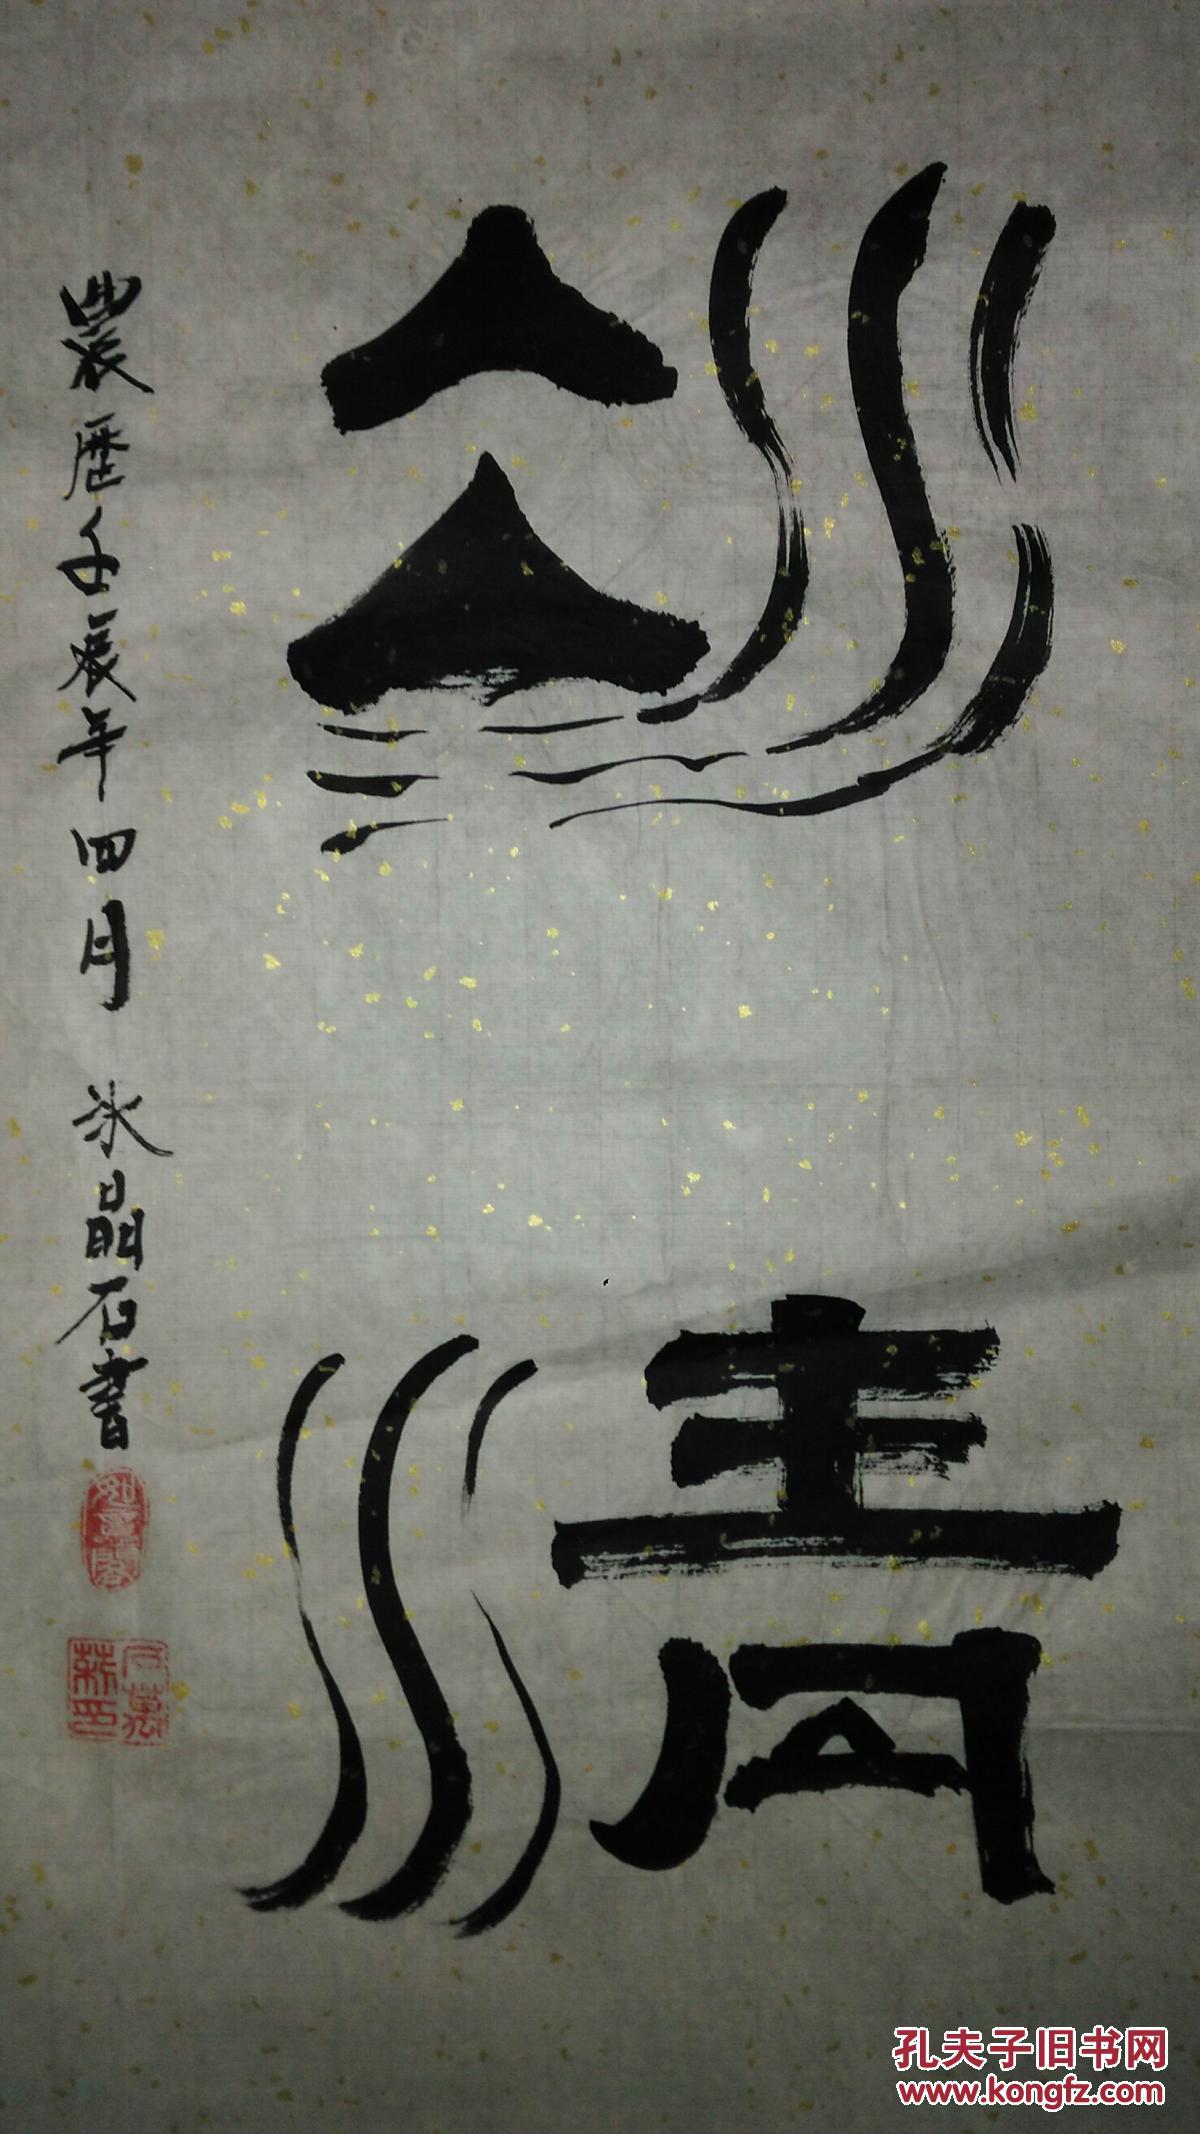 冰清
農歷壬辰年四月 冰晶石書
孔夫子旧书网
www.kongfz.com